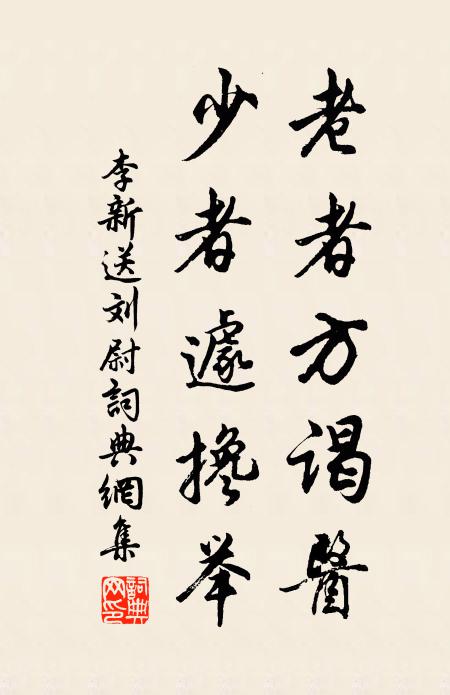 老者方谒醫
少者遽搀举
李新送刘尉詞典網集
詞典網印